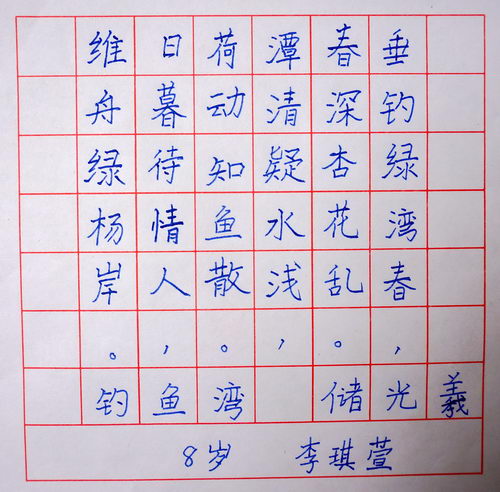 垂钓绿湾春，
春深杏花乱。
潭清疑水浅，
荷动知鱼散。
日暮待情人，
维舟绿杨岸。
钓鱼湾 储光羲
8岁 李琪萱